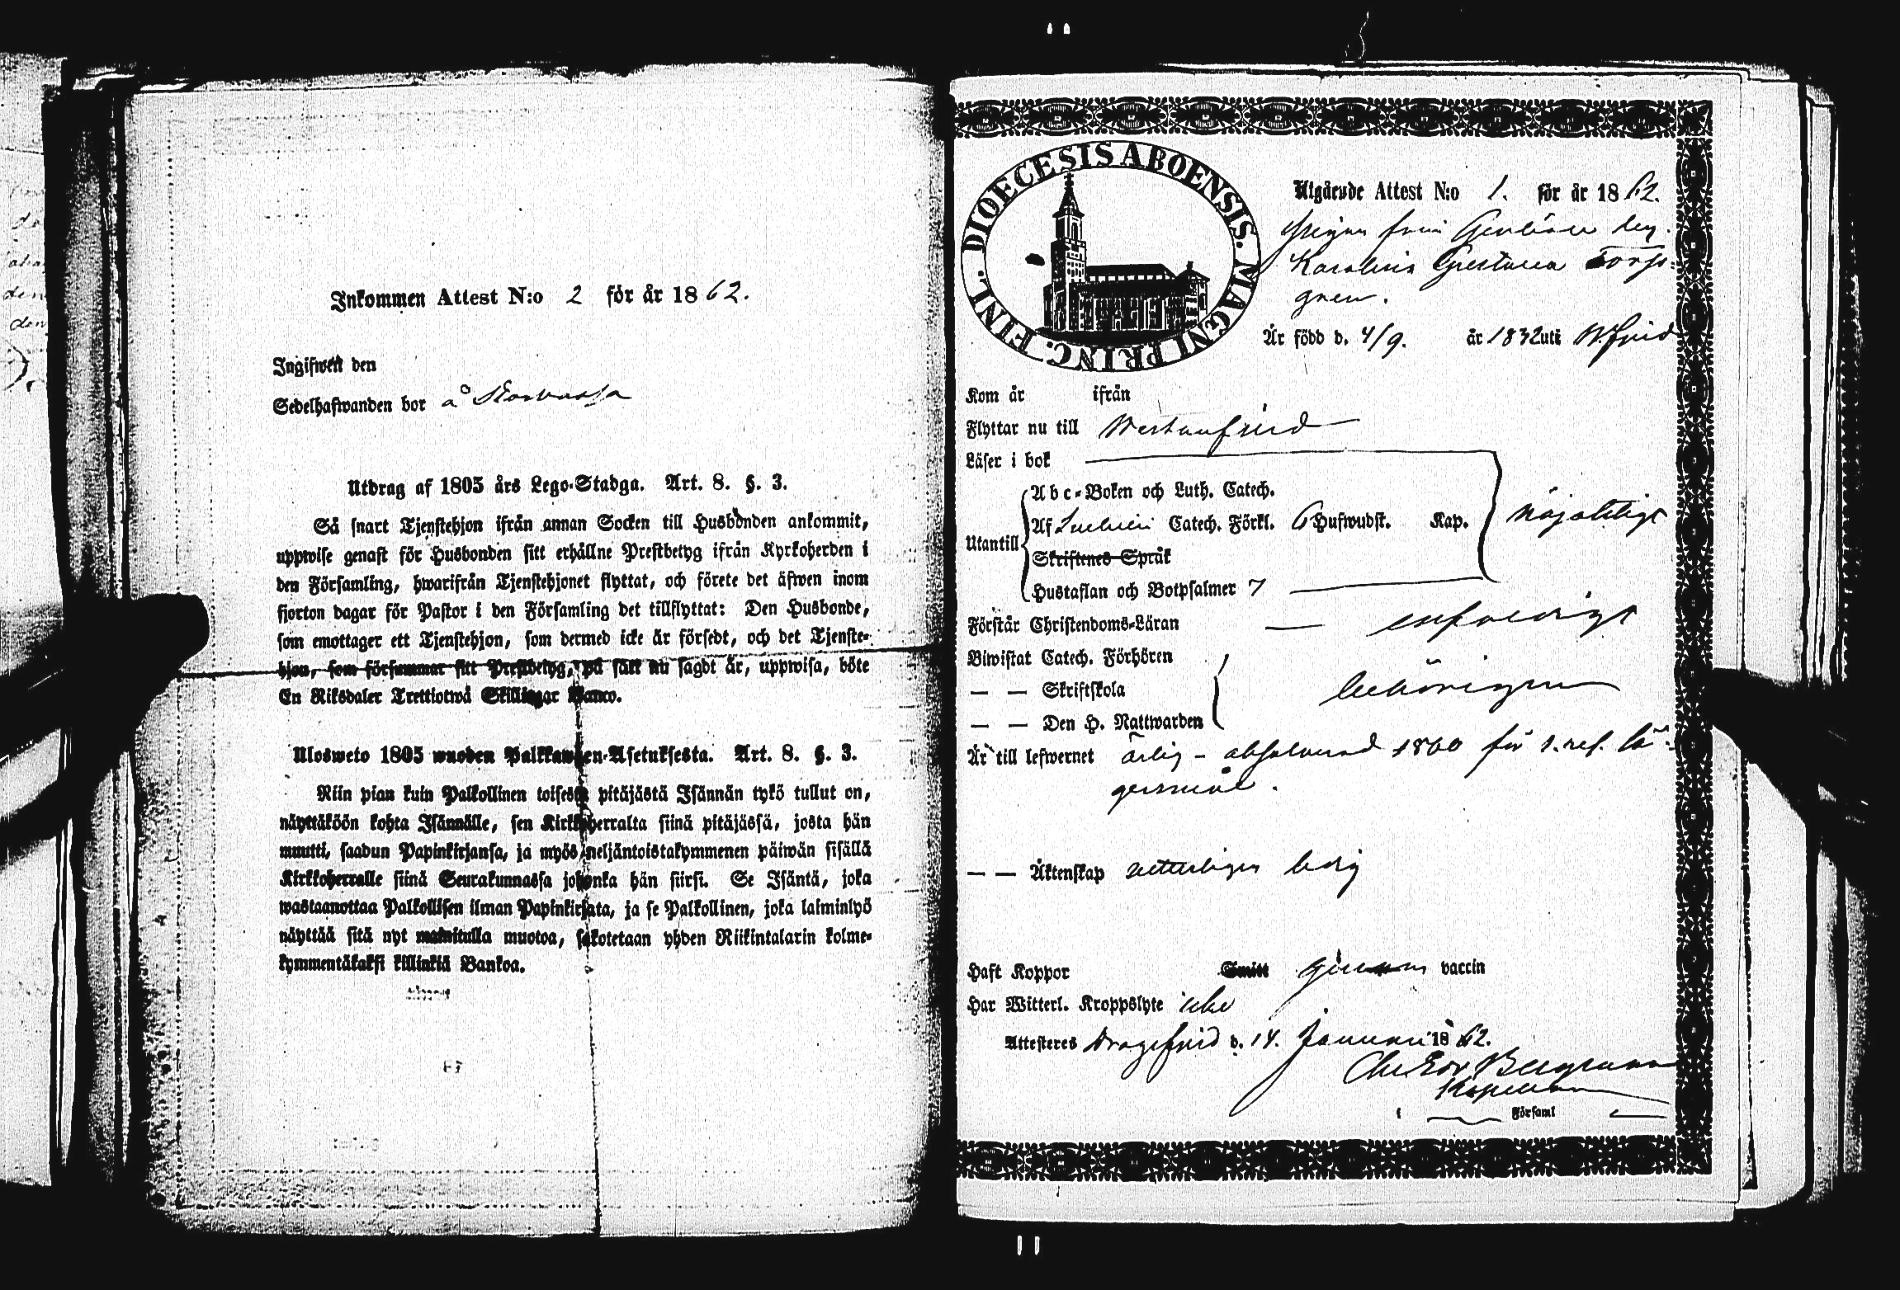 Inkommen Attest N:o 2 för år 1862.
Ingifwen den
Sedelhafwanden bor å
Utdrag af 1805 års Lego-Stadga. Art. 8. §. 3.
Så snart Tjenstehjon ifrån annan Socken till Husbonden ankommit,
uppwise genast för Husbonden sitt erhållne Prestbetyg ifrån Kyrkoherden i
den Församling, hwarifrån Tjenstehjonet flyttat, och förete det äfwen inom
fjorton dagar för Pastor i den Församling det tillflyttat: Den Husbonde,
som emottager ett Tjenstehjon, som dermed icke är försedt, och det Tjenste-
hjon, som försummar sitt Prestbetyg, på sätt nu sagdt är, uppwisa, böte
En Riksdaler Trettiotwå Skillingar Banco.
Ulosweto 1805 wuoden Palkkawäen-Asetuksesta. Art. 8. §. 3.
Niin pian kuin Palkollinen toisesta pitäjästä Isännän tykö tullut on,
näyttäköön kohta Isännälle, sen Kirkkoherralta siinä pitäjässä, josta hän
muutti, saadun Papinkirjansa, ja myös neljäntoistakymmenen päiwän sisällä
Kirkkoherralle siinä Seurakunnassa johonka hän siirsi. Se Isäntä, joka
wastaanottaa Palkollisen ilman Papinkirjata, ja se Palkollinen, joka laiminlyö
näyttää sitä nyt mainitulla muotoa, sakotetaan yhden Riikintalarin kolme-
kymmentäkaksi killinkiä Bankoa.
DIOECESIS ABOENSIS. MAGNI PRINC. FINL.
Utgående Attest N:o 1. för år 1862.
Pigan från
Karolina
gren.
Är född d. 4/9. år 1832 uti
Kom år ifrån
Flyttar nu till Westanfjerd
Läser i bok
Abc-Boken och Luth. Catech.
Af Catech. Förkl. 6 Hufwudst. Kap. nöjaktligt
Utantill
Skriftenes Språk
Hustaflan och Botpsalmer 7
Förstår Christendoms-Läran enfaldigt
Biwistat Catech. Förhören
— — Skriftskola behörigen
— — Den H. Nattwarden
Är till lefwernet ärlig - absolverad 1860 för 1. res. lä-
gersmål.
— — Äktenskap ledig
Haft Koppor Smitt genom vaccin
Har Witterl. Kroppslyte icke
Attesteres Dragsfjerd d. 14. Januari 1862.
Bergman
Kapellan
i Församl